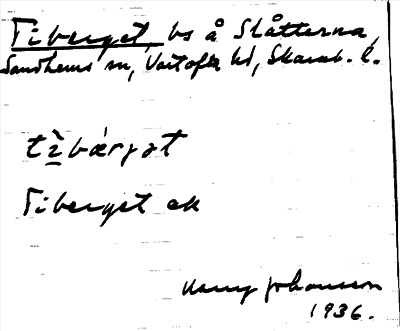 Tiberget, bs å Slåtterna,
Sandhems sn, Vartofta hd, Skarab. l.
tìbærjət
Tiberget ek
Harry Johansson
1936.